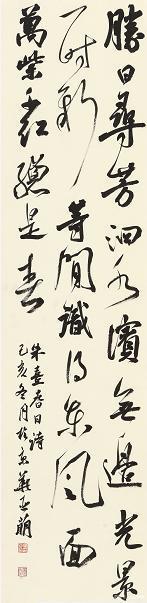 勝日尋芳泗水濱無邊光景
一時新等閒識得東風面
萬紫千紅總是春
朱熹春日詩
己亥冬月於京